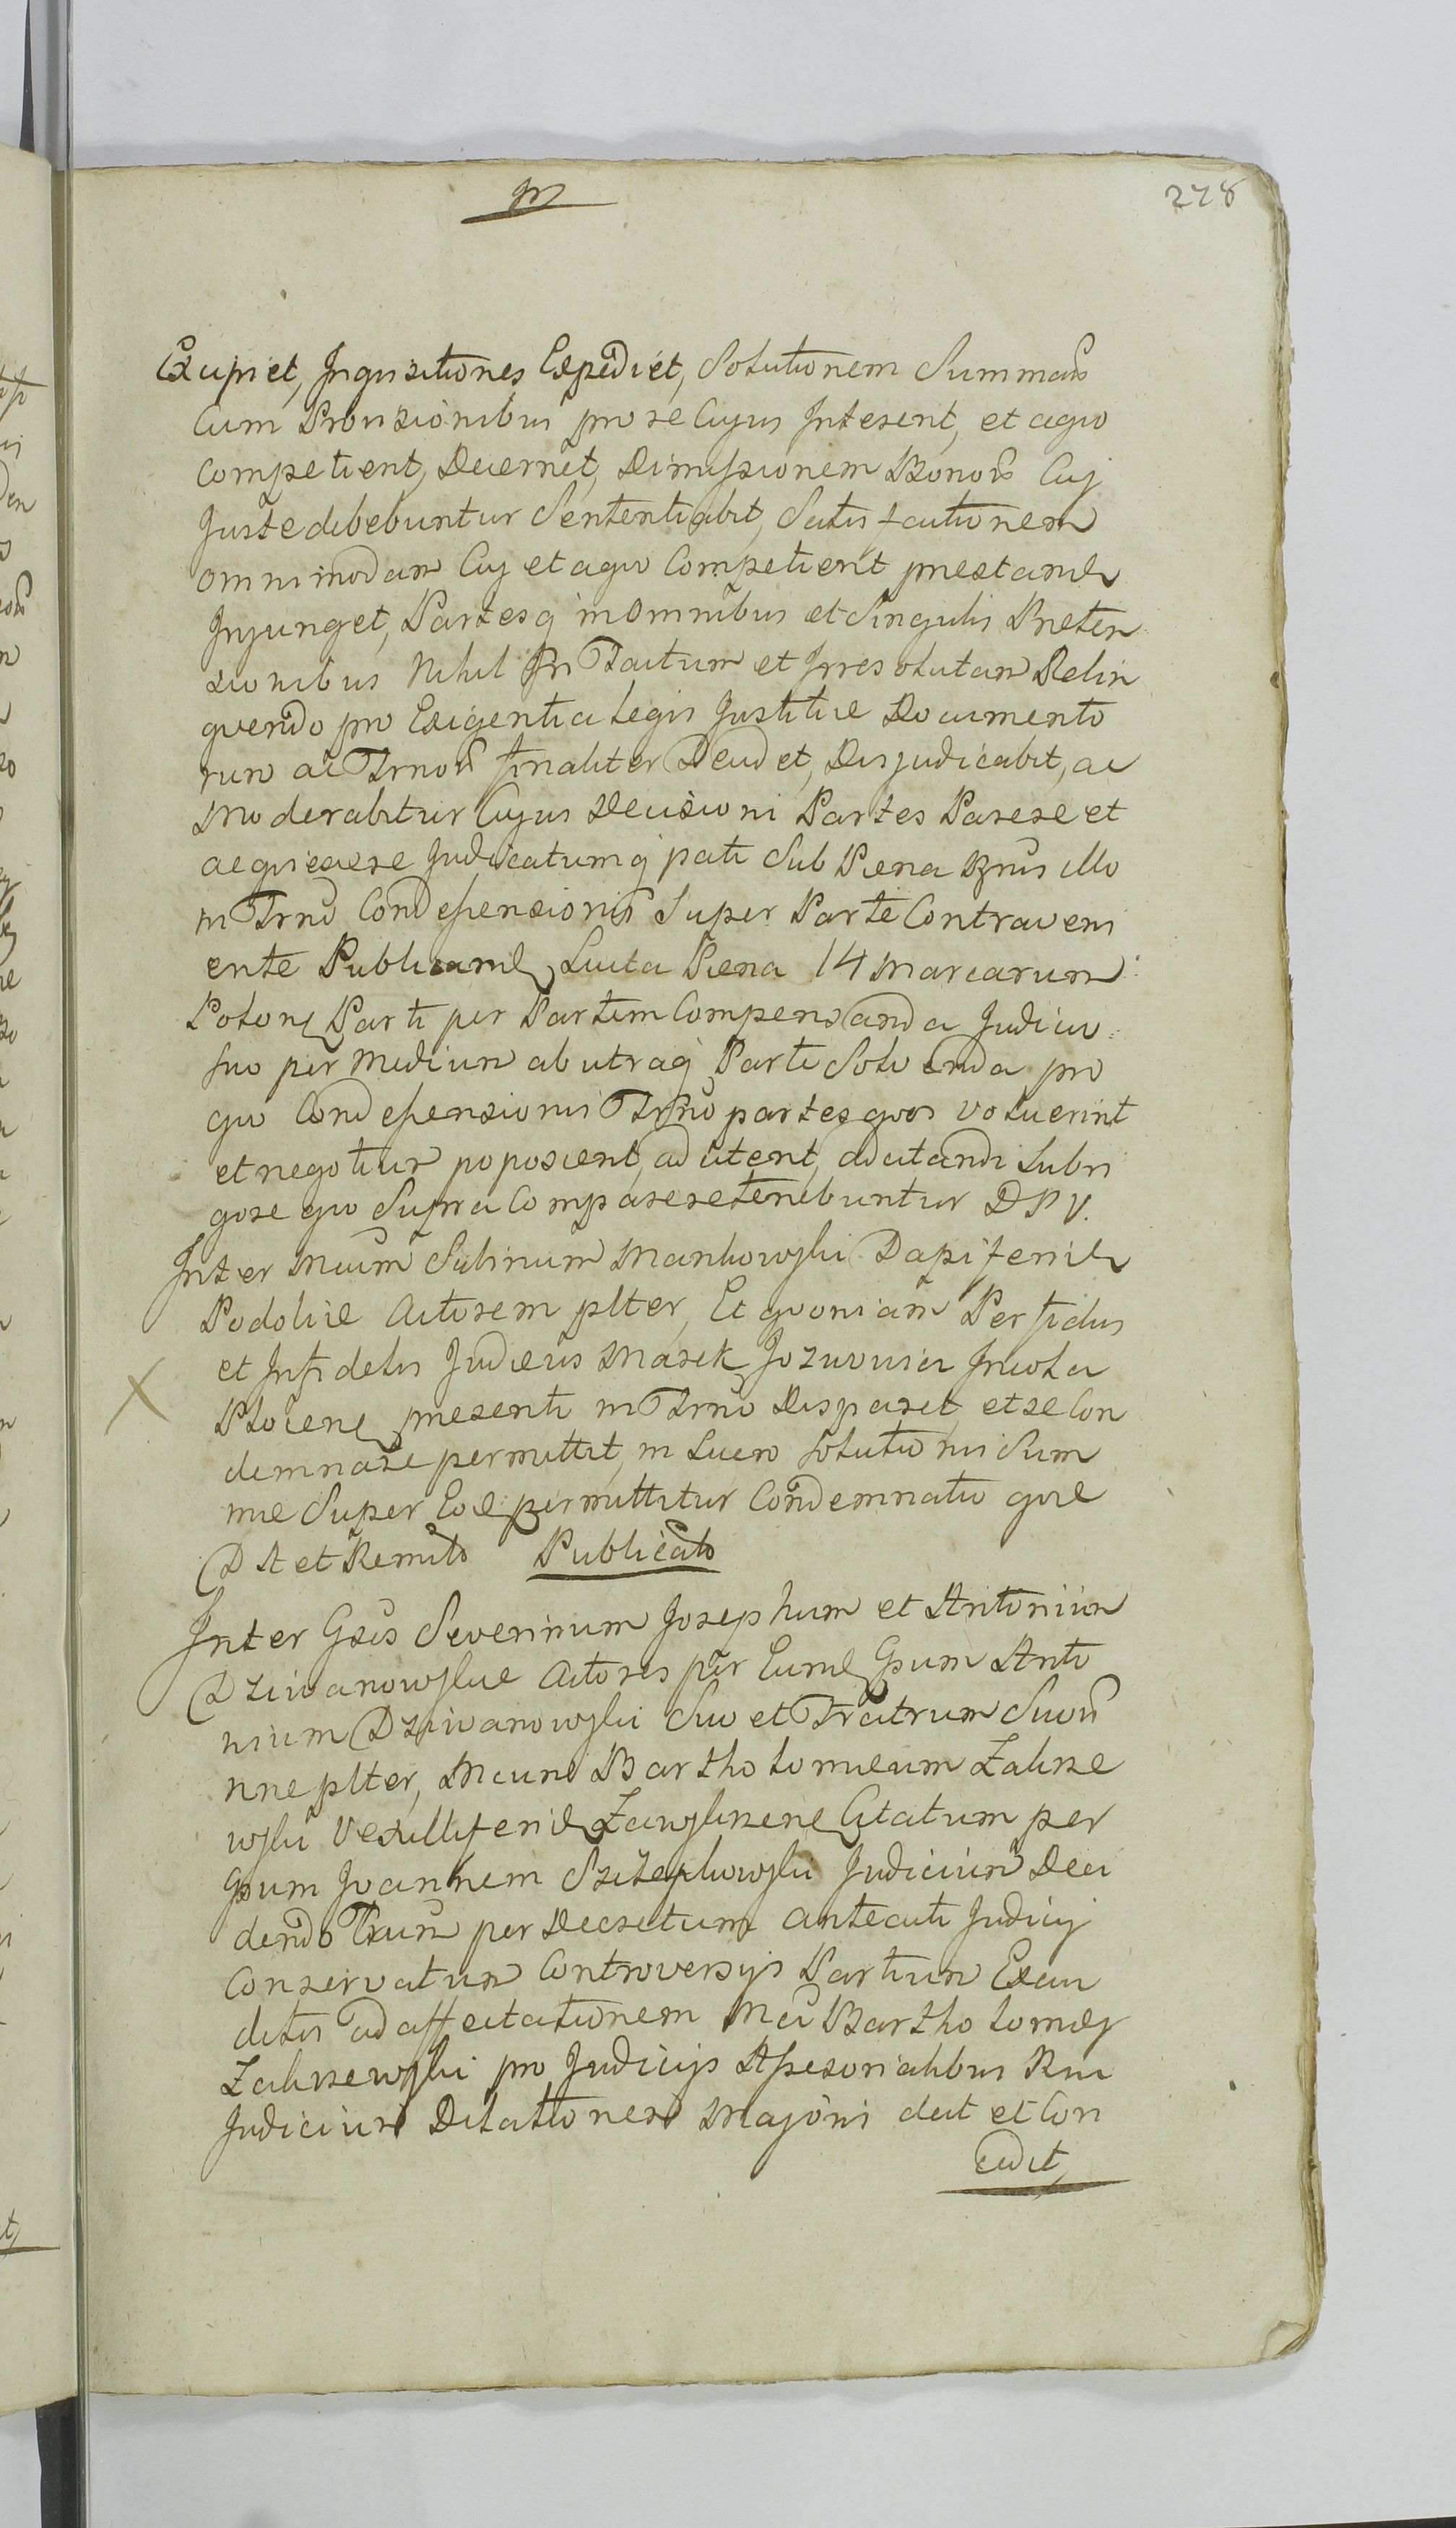 m
228
Excipiet, Inquisitiones Expediet, Solutionem Summarũ
Cum Provisionibus pro re Cujus Interent, et a quo
Competient, Decernet, Dimissionem Bonorũ Cuj
Juste debebuntur Sententiabit, Satisfactionem
omnimodam Cuj et a quo Competient prestand
Injunget, Partesq in omnibus et Singulis Preten
sionibus Nihil In Tactum et Irresolutam Relin
quendo pro Exigentia Legis Justitiæ Documento
rum ac Trnorũ finaliter Decidet, Disjudicabit, ac
Moderabitur Cujus Decisioni Partes Parere et
acquiescere Judicatumq pati Sub Pœna Bnis illo
in Trno Condescensionis Super Parte Contraveni
ente Publicand, Luita Pœna 14 Marcarum
Polon Parti per Partem Compensanda Judicio
suo per Medium ab utraq Parte Solvenda pro
quo Condescensionis Trno partes quos voluerint
et negotium poposcent, adcitent, adcitandi Subri
gore quo Supra Comparere tenebuntur D P V.
Inter Mcum Sulinum Mankowski Dapiferid
Podoliæ Actorem plter, Et quoniam Perfidus
et Infidelis Judæus Marek Jozwowicz Incola
Plocien presenti in Trno Disparet et se Con
demnare permittit, in Lucro solutionis Sum
mæ Super Eo permittitur Condemnatio quæ
D A et Remitto Publicato
Inter Gsos Severinum Josephum et Antonium
Dziwanowskie Actores per Eund Gsum Anto
nium Dziwanowski Suo et Fratrum Suorũ
nne plter, Mcum Bartholomæum Zakrze
wski Vexilliferid Zawskrzen Citatum per
Gsum Joannem Szczepkowski Judicium Deci
dendo Trnum per Decretum anteacti Judicij
Conservatum Controversijs Partium Exau
ditis ad affectationem Mci Bartholomæj
Zakrzewski pro Judicijs Assesorialibus Rni
Judicium Dilationem Majoris dat et Con
cedit,